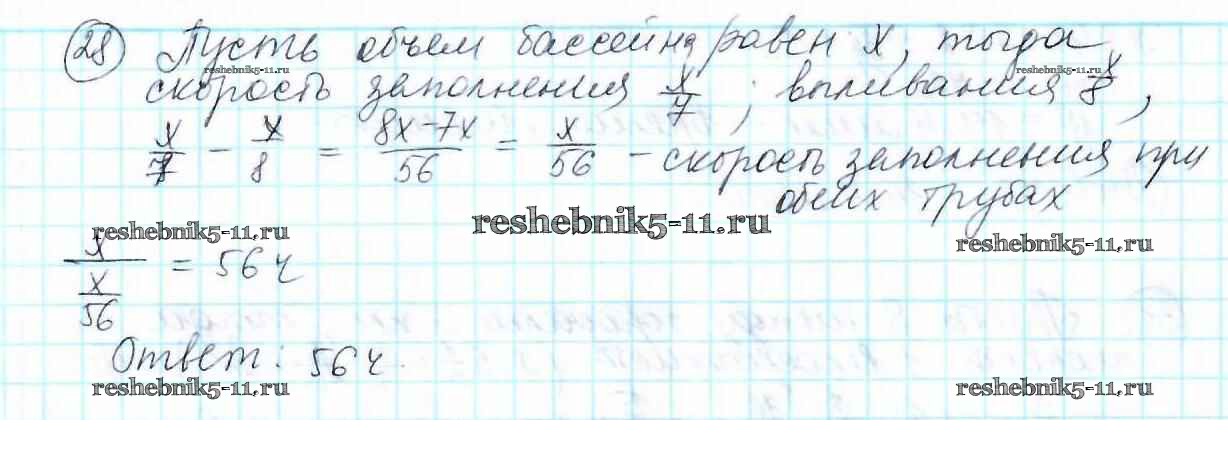 28 Пусть объем бассейна равен x, тогда
скорость заполнения x/7; выливания x/8,
x/7 - x/8 = 8x-7x/56 = x/56 - скорость заполнения при
обеих трубах
x/(x/56) = 56 ч
Ответ: 56 ч.
reshebnik5-11.ru
reshebnik5-11.ru
reshebnik5-11.ru
reshebnik5-11.ru
reshebnik5-11.ru
reshebnik5-11.ru
reshebnik5-11.ru